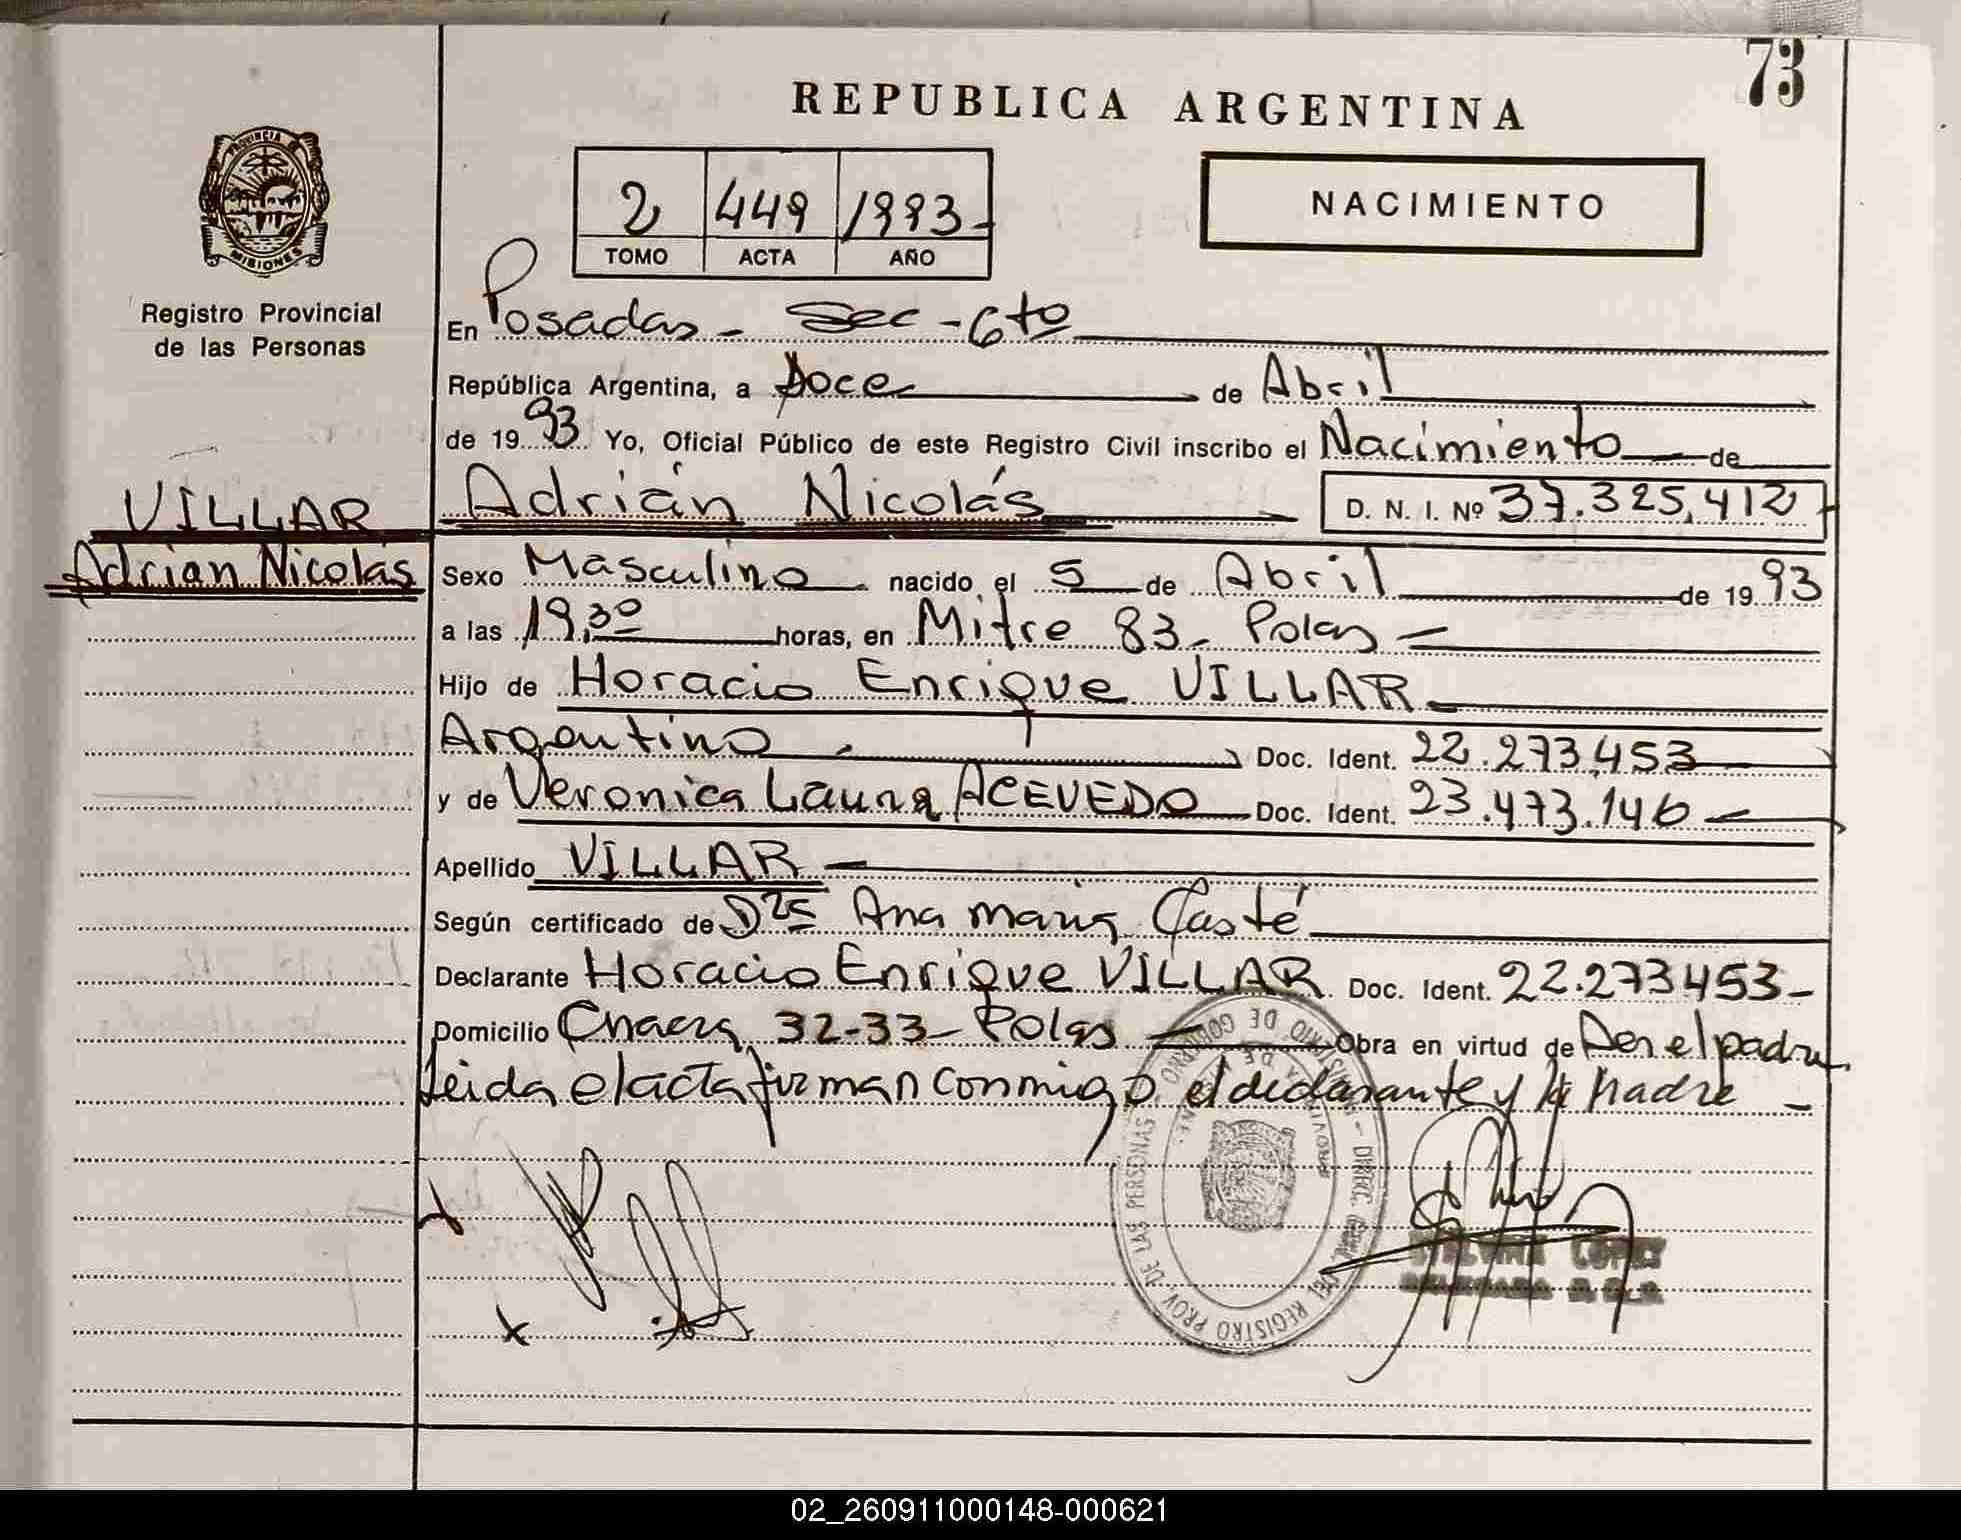 73
REPUBLICA ARGENTINA
2 449 1993
TOMO ACTA AÑO
NACIMIENTO
PROVINCIA
MISIONES
Registro Provincial
de las Personas
En Posadas - Sec - 6to
República Argentina, a Doce de Abril
de 1993 Yo, Oficial Público de este Registro Civil inscribo el Nacimiento de
VILLAR
Adrián Nicolás D. N. I. Nº 37.325,412
Adrian Nicolás
Sexo Masculino nacido el 5 de Abril de 1993
a las 19,30 horas, en Mitre 83 - Pdas -
Hijo de Horacio Enrique VILLAR -
Argentino Doc. Ident. 22.273,453
y de Veronica Laura ACEVEDO Doc. Ident. 23.473.146 -
Apellido VILLAR -
Según certificado de Dra Ana maria Casté
Declarante Horacio Enrique VILLAR Doc. Ident. 22.273453 -
Domicilio Chacra 32-33 - Pdas - Obra en virtud de Ser el padre
Leida el acta firman conmigo el declarante y la Madre -
DEL REGISTRO PROV. DE LAS PERSONAS
02_260911000148-000621